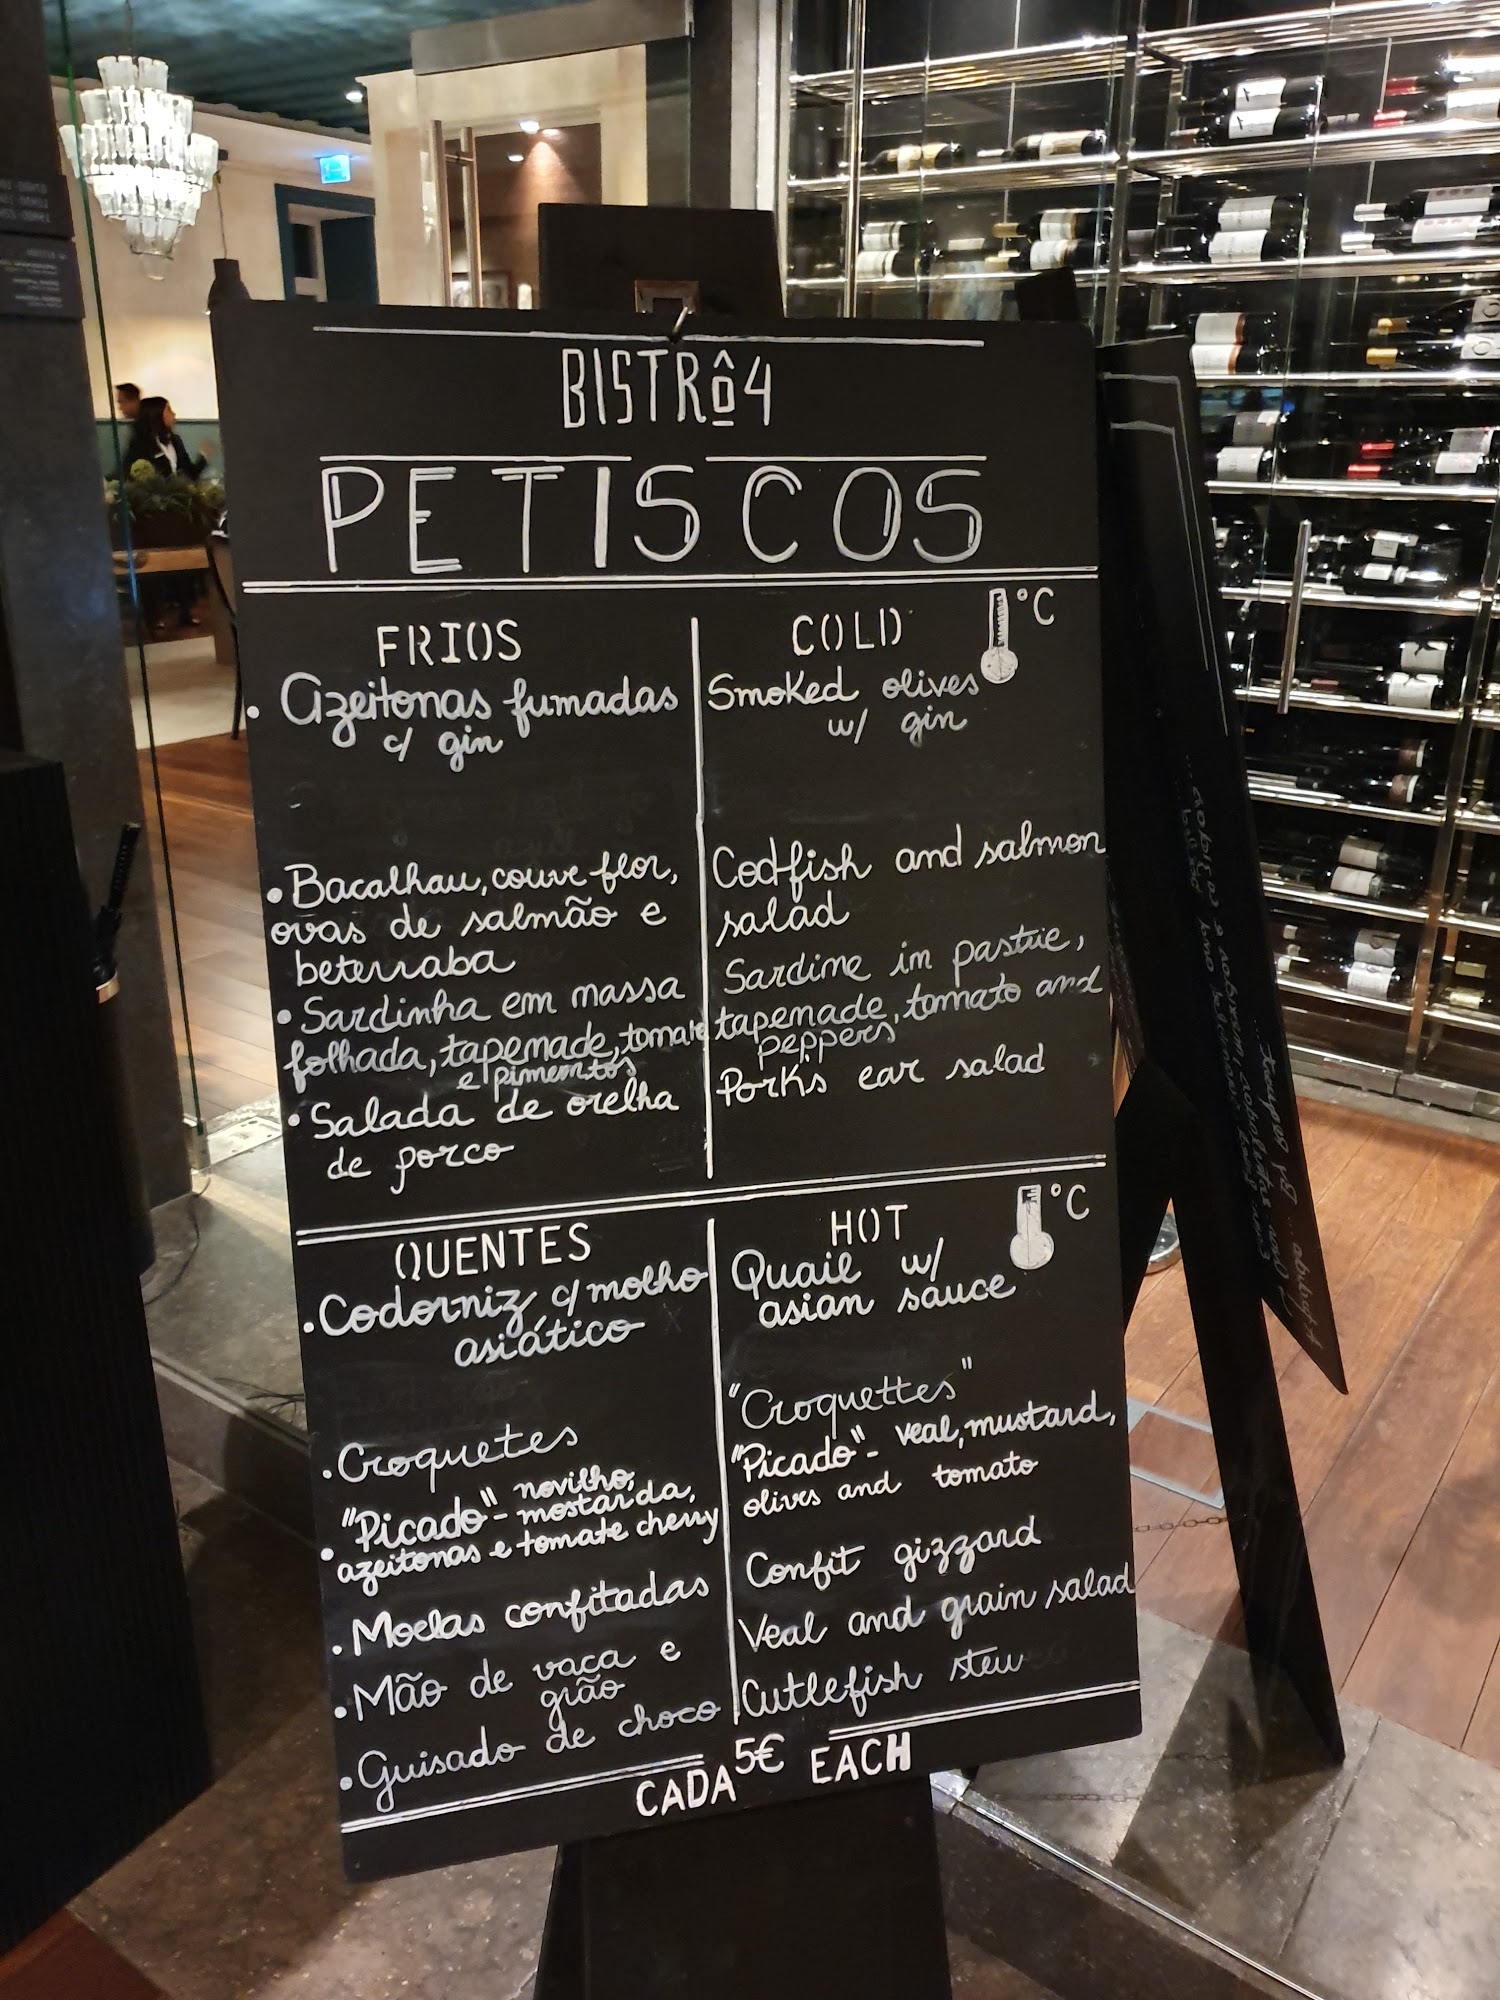 BISTRÔ4
PETISCOS
FRIOS
• Azeitonas fumadas
c/ gin
• Bacalhau, couve flor,
ovas de salmão e
beterraba
• Sardinha em massa
folhada, tapenade, tomate
e pimentos
• Salada de orelha
de porco
COLD °C
Smoked olives
w/ gin
Codfish and salmon
salad
Sardine in pastrie,
tapenade, tomato and
peppers
Pork's ear salad
QUENTES
• Codorniz c/ molho
asiático
• Croquetes
• "Picado" - novilho,
mostarda,
azeitonas e tomate cherry
• Moelas confitadas
• Mão de vaca e
grão
• Guisado de choco
HOT °C
Quail w/
asian sauce
"Croquettes"
"Picado" - veal, mustard,
olives and tomato
Confit gizzard
Veal and grain salad
Cutlefish stew
CADA 5€ EACH